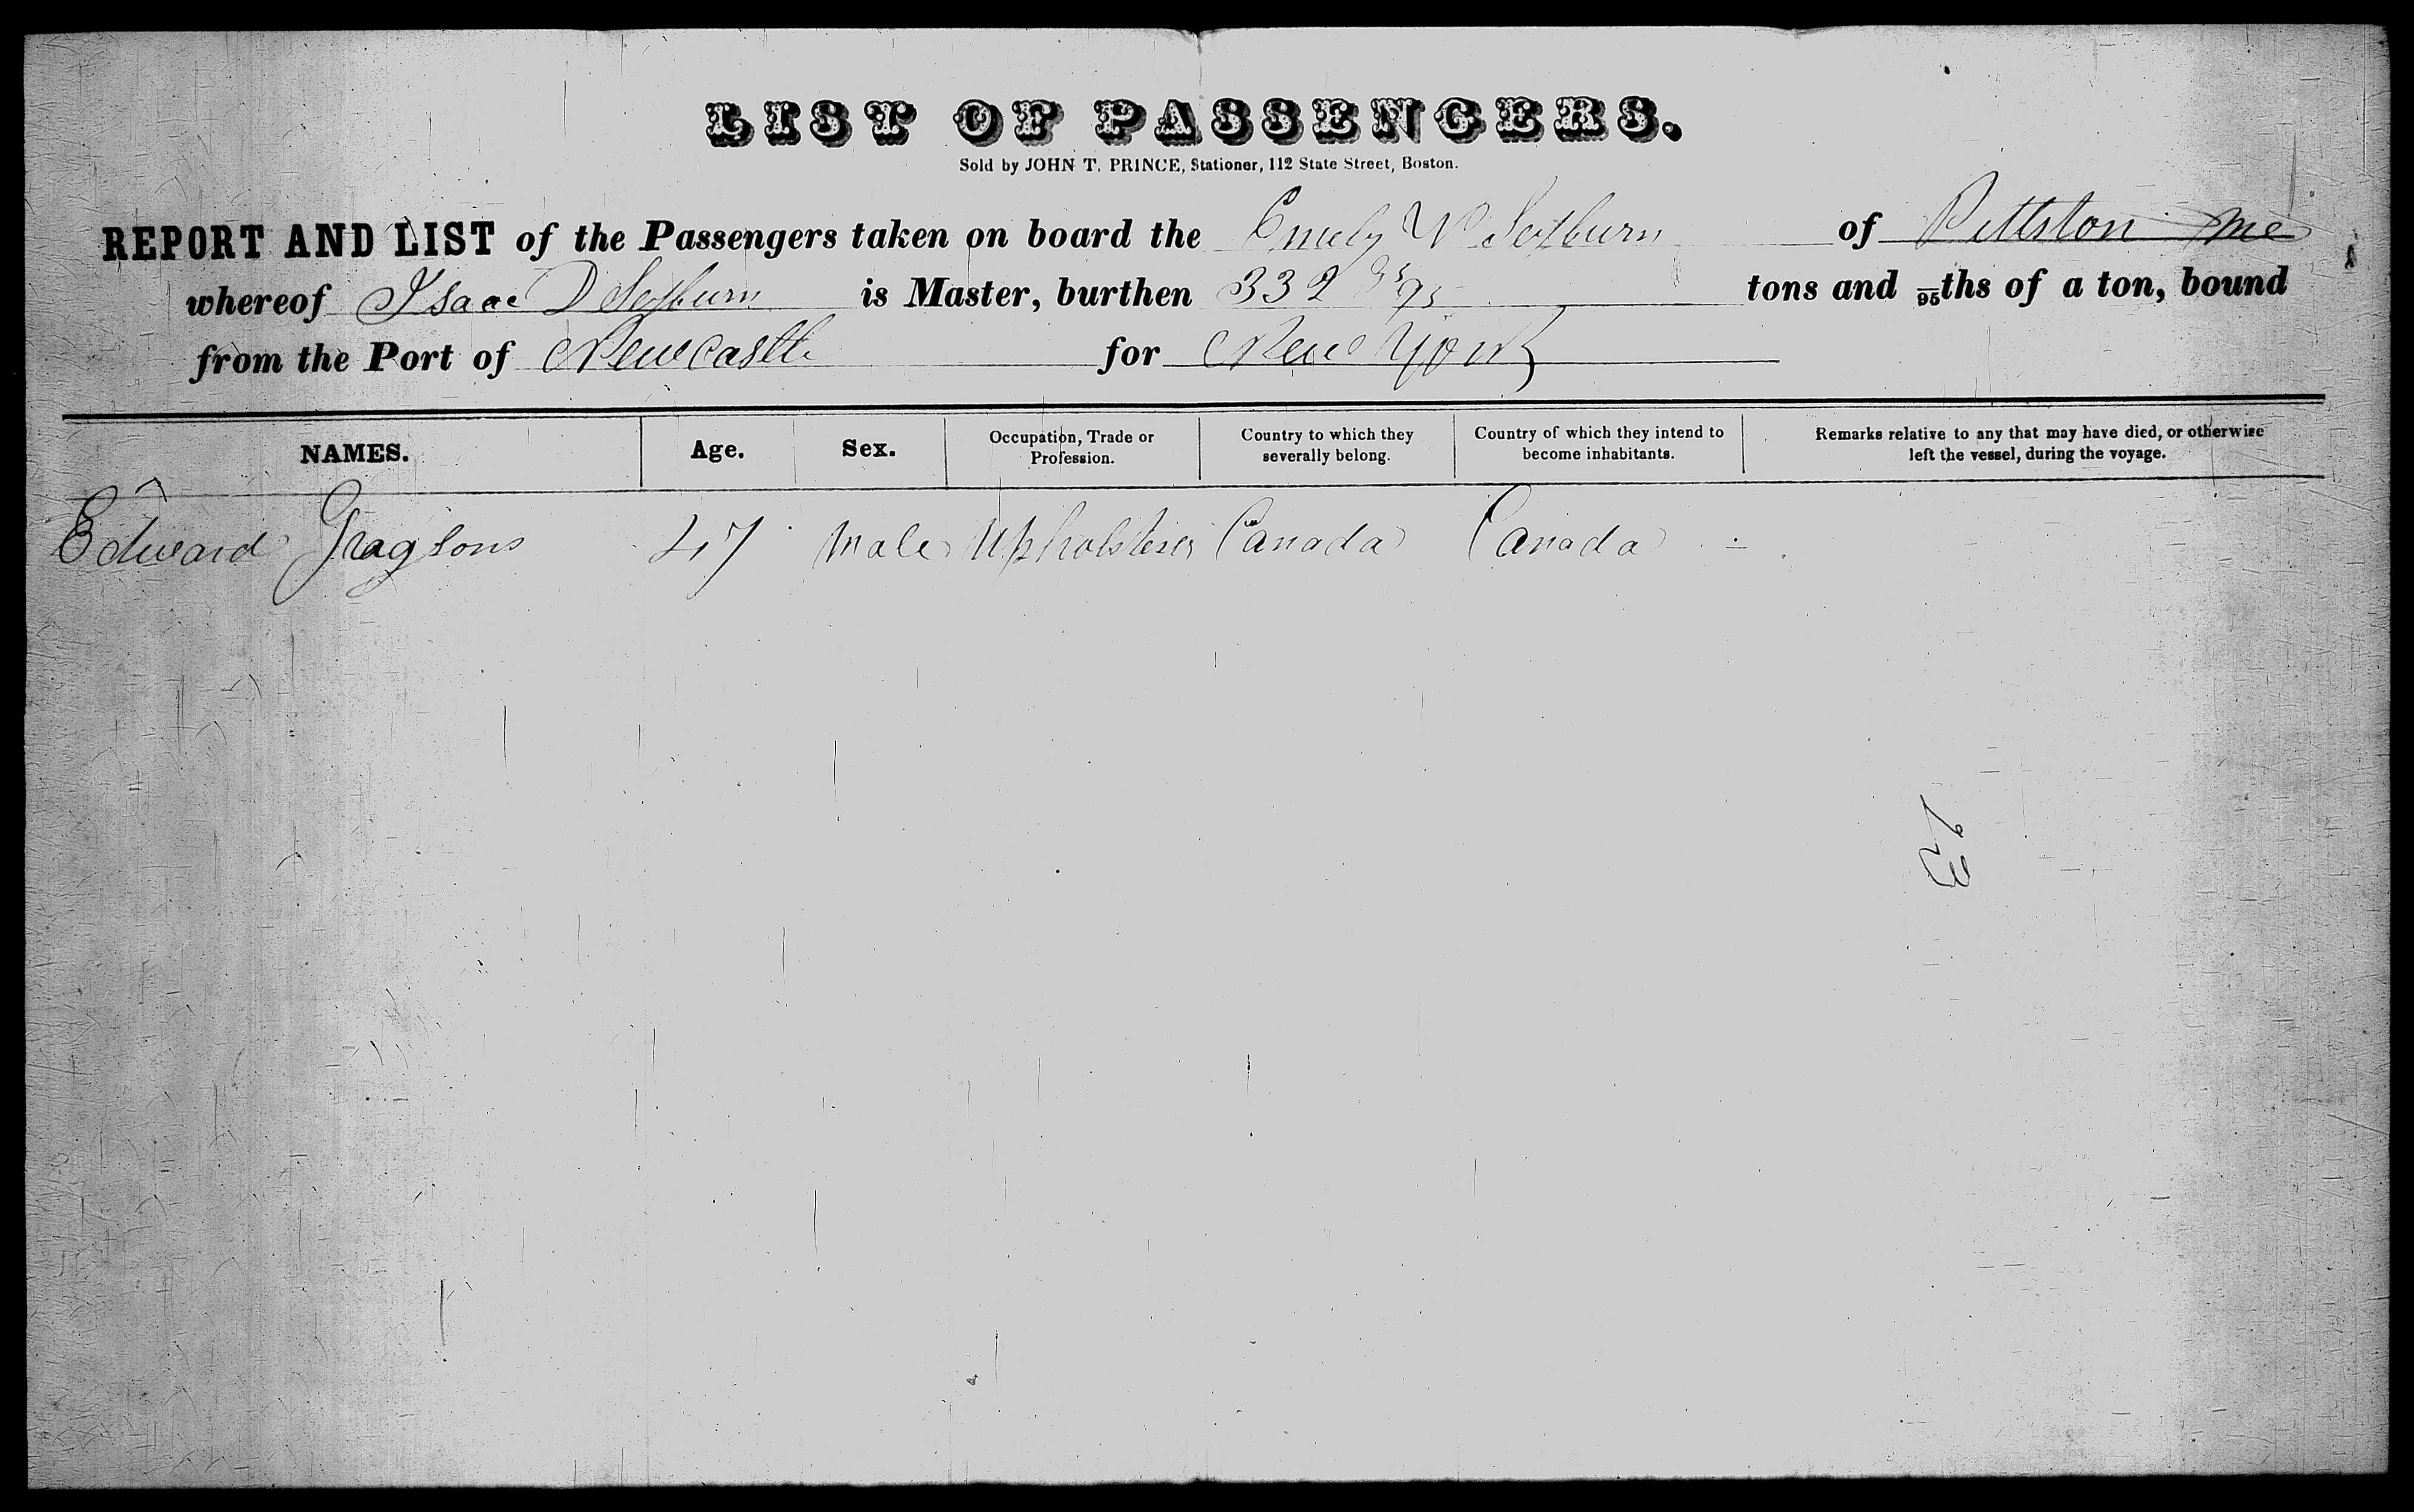 LIST OF PASSENGERS.
Sold by JOHN T. PRINCE, Stationer, 112 State Street, Boston.
REPORT AND LIST of the Passengers taken on board the Emily W Seyburn of Pittston Me
whereof Isaac D Seyburn is Master, burthen 332 35/95 tons and /95ths of a ton, bound
from the Port of Newcastle for New York
NAMES. Age. Sex. Occupation, Trade or Profession. Country to which they severally belong. Country of which they intend to become inhabitants. Remarks relative to any that may have died, or otherwise left the vessel, during the voyage.
Edward 47 Male Upholsterer Canada Canada
23